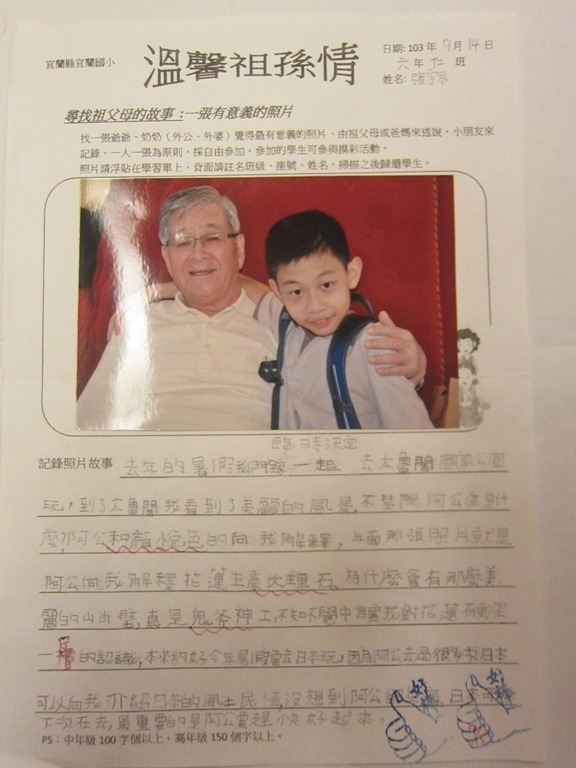 宜蘭縣宜蘭國小
溫馨祖孫情
日期: 103 年 9月 14 日
六 年 仁 班
姓名:
尋找祖父母的故事：一張有意義的照片
找一張爺爺、奶奶（外公、外婆）覺得最有意義的照片，由祖父母或爸媽來述說，小朋友來
記錄。一人一張為原則，採自由參加，參加的學生可參與摸彩活動。
照片請浮貼在學習單上，背面請註名班級、座號、姓名，掃描之後歸還學生。
臨時決定
記錄照片故事 去年的暑假我們 一起 去太魯閣國家公園
玩，到了太魯閣我看到了美麗的風景，不禁問阿公這是什
麼，阿公和顏悅色的向我解釋， 面那張照片就是
阿公向我解釋花蓮生產大理石，為什麼會有那麼美
麗的山峭壁，真是鬼斧神工，不知不覺中 我對花蓮有更深
一層的認識，本來約好今年暑假要去日本玩，因為阿公去過很多次日本
可以向我介紹日本的風土民情，沒想到阿公 日本
下次在去，最重要的是阿公要趕快好起來。
PS：中年級 100 字個以上。高年級 150 個字以上。
好棒
好棒